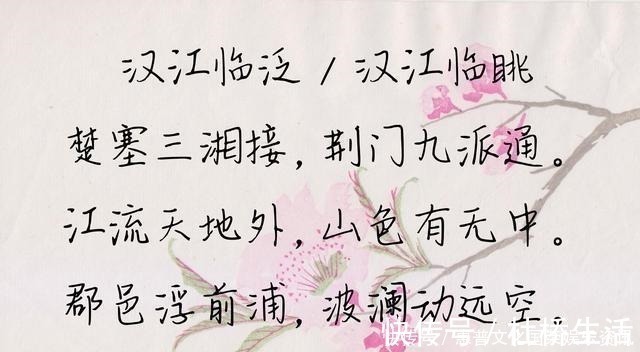 汉江临泛 / 汉江临眺
楚塞三湘接，荆门九派通。
江流天地外，山色有无中。
郡邑浮前浦，波澜动远空。
快传号 /